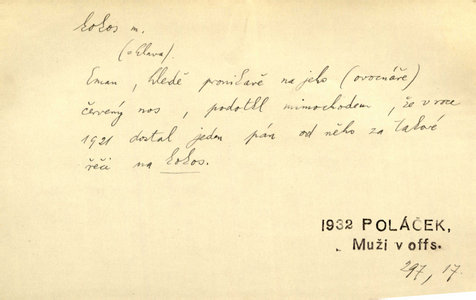 kokos m.
(= hlava).
Eman, hledě pronikavě na jeho (ovocnáře)
červený nos, podotkl mimochodem, že v roce
1921 dostal jeden pán od něho za takové
řeči na kokos.
1932 POLÁČEK,
Muži v offs.
297, 17.